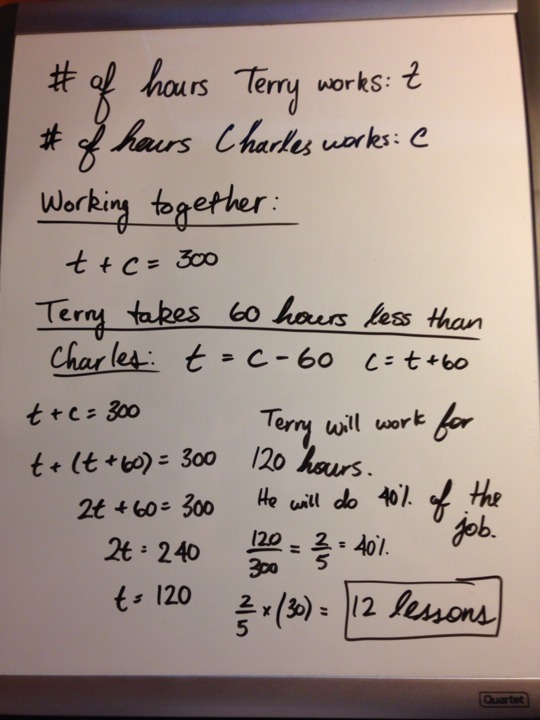 # of hours Terry works: t
# of hours Charles works: c
Working together:
t + c = 300
Terry takes 60 hours less than
Charles: t = c - 60 c = t + 60
t + c = 300
t + (t + 60) = 300
2t + 60 = 300
2t = 240
t = 120
Terry will work for
120 hours.
He will do 40% of the
job.
120/300 = 2/5 = 40%
2/5 × (30) = 12 lessons
Quartet